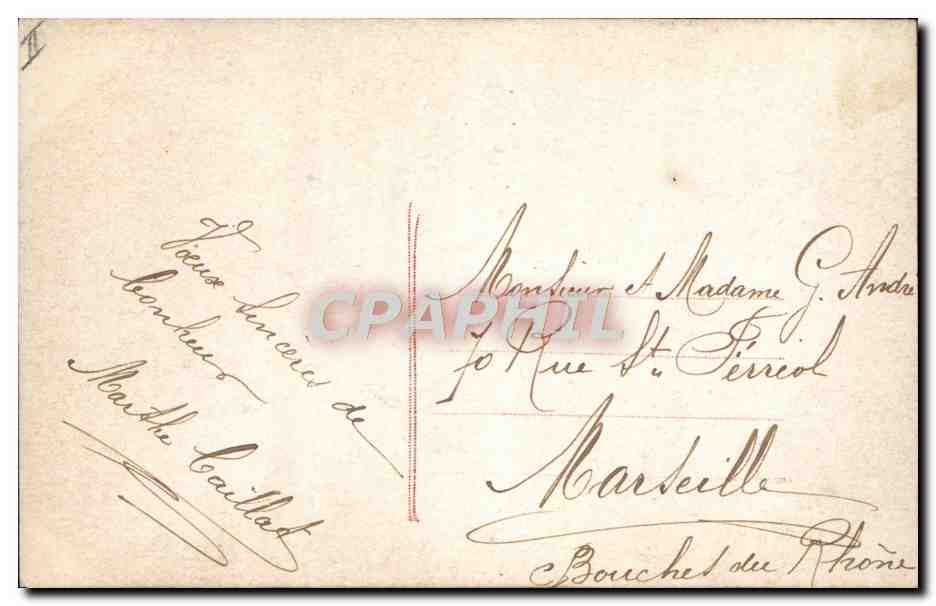 II
Voeux sincères de
bonheur
Marthe Caillat
Monsieur et Madame G. André
70 Rue St Férréol
Marseille
Bouches du Rhône
CPAPHIL